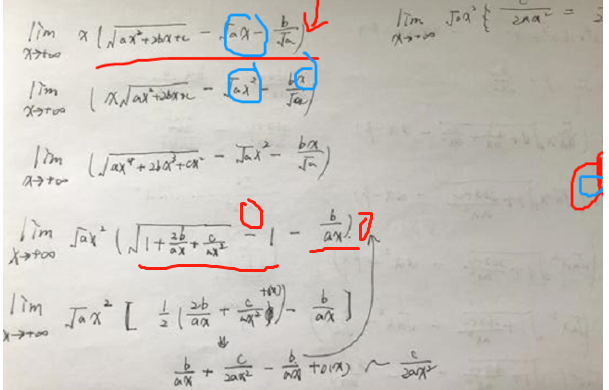 lim x→+∞ x(√(ax²+2bx+c) − √a x − b/√a)
lim x→+∞ √a x² { c/(2ax²) =
lim x→+∞ (x√(ax²+2bx+c) − √a x² − bx/√a)
lim x→+∞ (√(ax⁴+2bx³+cx²) − √a x² − bx/√a)
lim x→+∞ √a x² (√(1+2b/(ax)+c/(ax²)) − 1 − b/(ax))
lim x→+∞ √a x² [ 1/2 (2b/(ax) + c/(ax²) + o(x)) − b/(ax) ]
b/(ax) + c/(2ax²) − b/(ax) + o(x) ~ c/(2ax²)